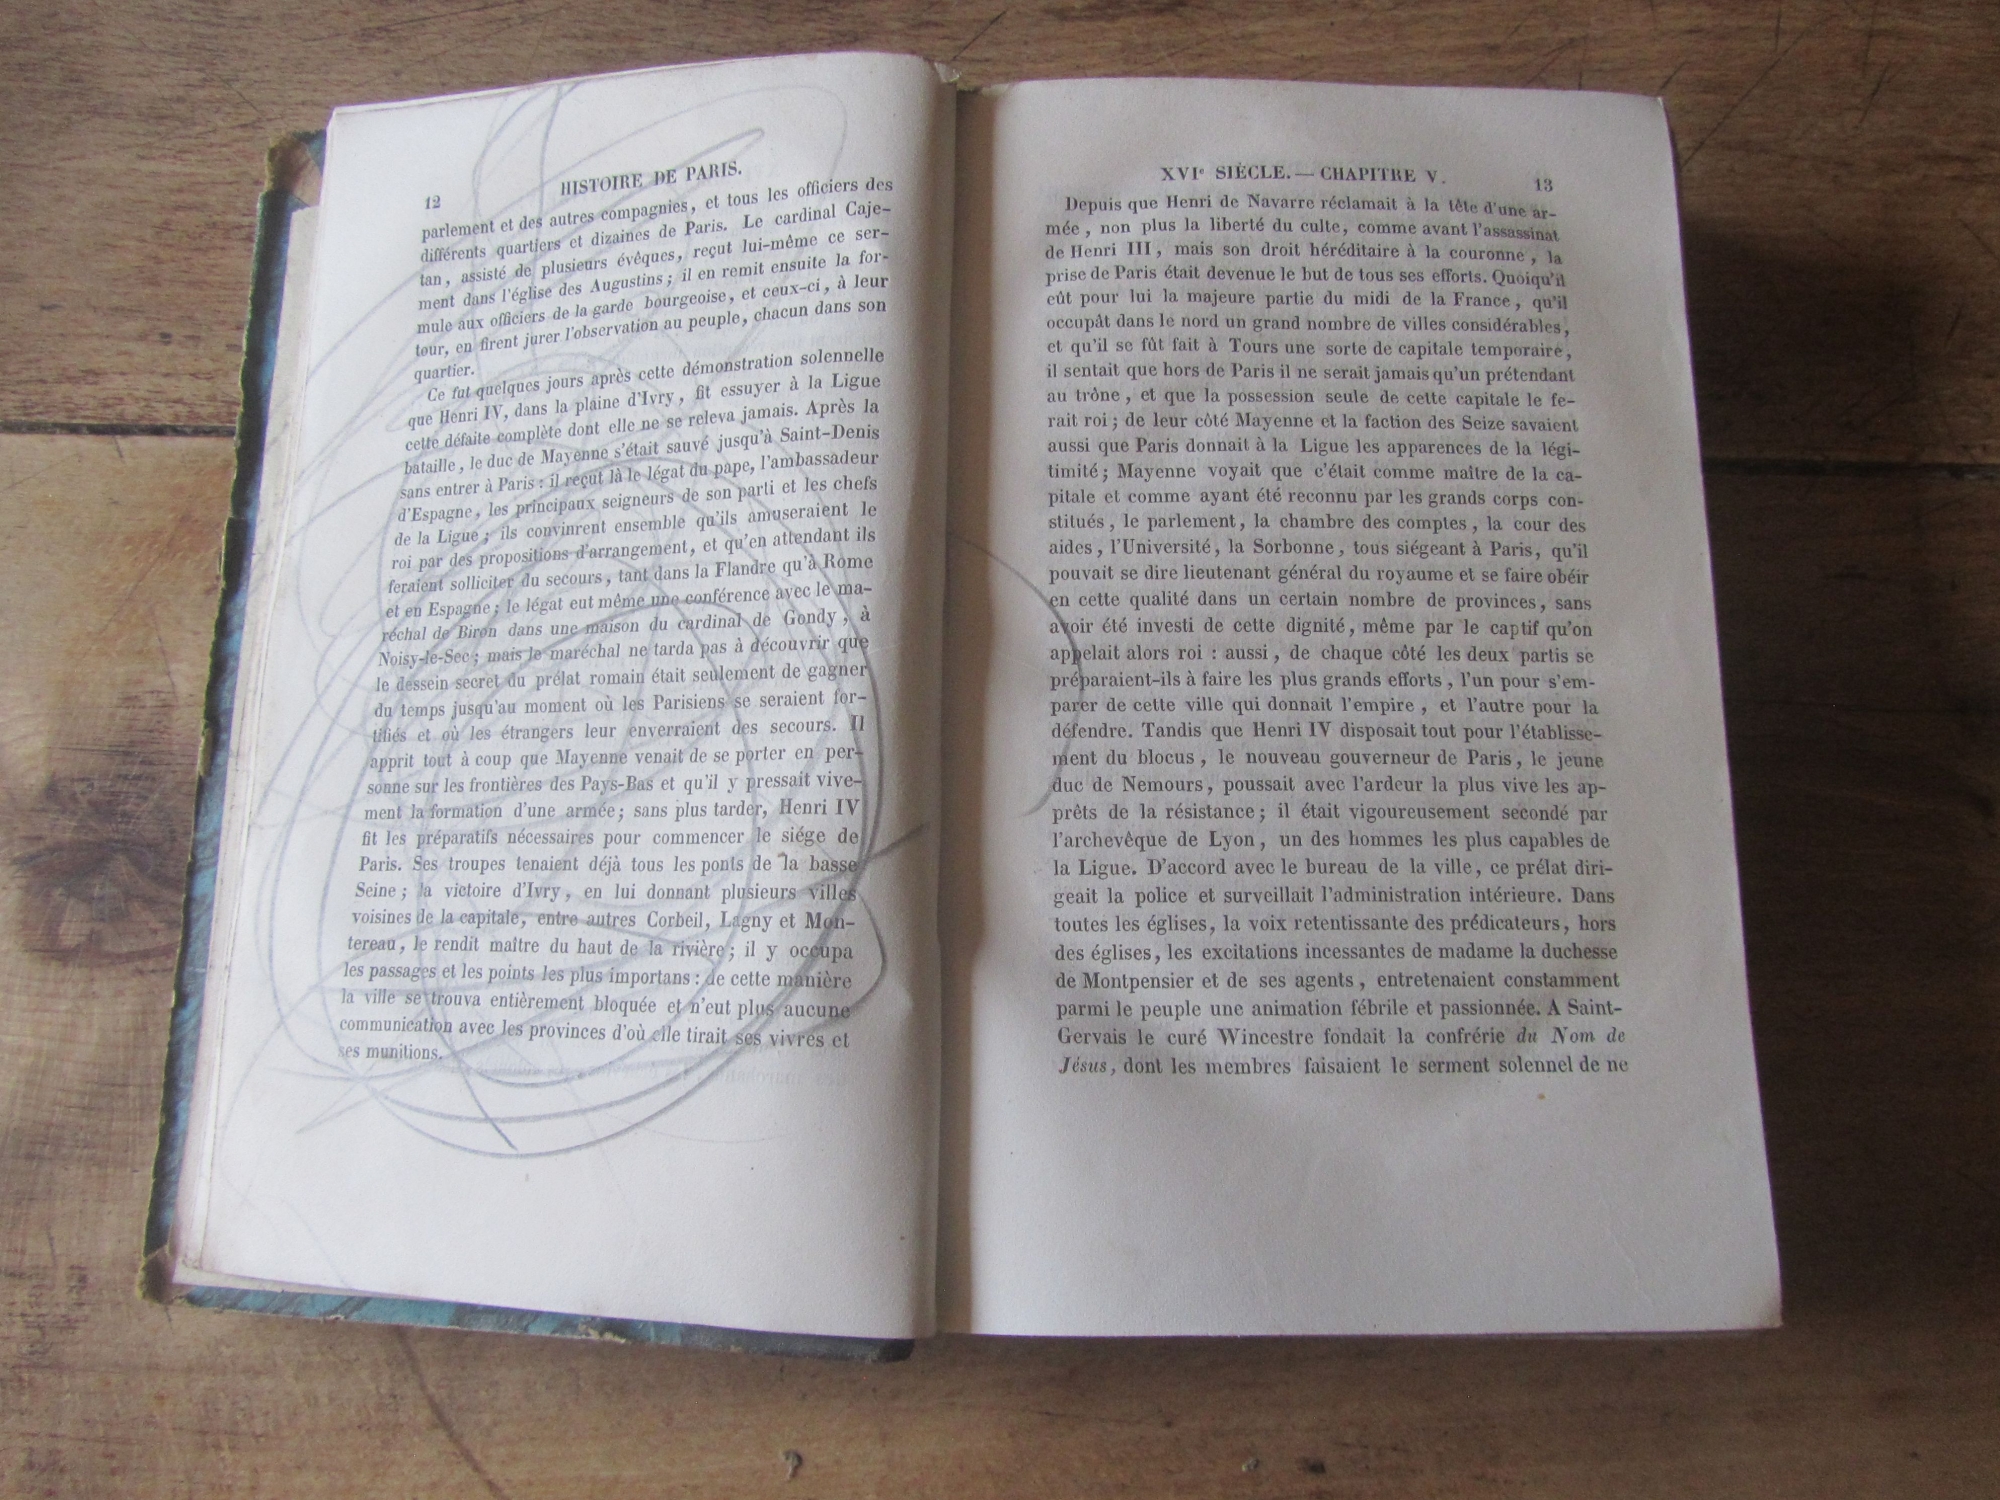 12 HISTOIRE DE PARIS.
parlement et des autres compagnies, et tous les officiers des
différents quartiers et dizaines de Paris. Le cardinal Caje-
tan, assisté de plusieurs évêques, reçut lui-même ce ser-
ment dans l'église des Augustins; il en remit ensuite la for-
mule aux officiers de la garde bourgeoise, et ceux-ci, à leur
tour, en firent jurer l'observation au peuple, chacun dans son
quartier.
Ce fut quelques jours après cette démonstration solennelle
que Henri IV, dans la plaine d'Ivry, fit essuyer à la Ligue
cette défaite complète dont elle ne se releva jamais. Après la
bataille, le duc de Mayenne s'était sauvé jusqu'à Saint-Denis
sans entrer à Paris : il reçut là le légat du pape, l'ambassadeur
d'Espagne, les principaux seigneurs de son parti et les chefs
de la Ligue; ils convinrent ensemble qu'ils amuseraient le
roi par des propositions d'arrangement, et qu'en attendant ils
feraient solliciter du secours, tant dans la Flandre qu'à Rome
et en Espagne; le légat eut même une conférence avec le ma-
réchal de Biron dans une maison du cardinal de Gondy, à
Noisy-le-Sec; mais le maréchal ne tarda pas à découvrir que
le dessein secret du prélat romain était seulement de gagner
du temps jusqu'au moment où les Parisiens se seraient for-
tifiés et où les étrangers leur enverraient des secours. Il
apprit tout à coup que Mayenne venait de se porter en per-
sonne sur les frontières des Pays-Bas et qu'il y pressait vive-
ment la formation d'une armée; sans plus tarder, Henri IV
fit les préparatifs nécessaires pour commencer le siége de
Paris. Ses troupes tenaient déjà tous les ponts de la basse
Seine; la victoire d'Ivry, en lui donnant plusieurs villes
voisines de la capitale, entre autres Corbeil, Lagny et Mon-
tereau, le rendit maître du haut de la rivière; il y occupa
les passages et les points les plus importans : de cette manière
la ville se trouva entièrement bloquée et n'eut plus aucune
communication avec les provinces d'où elle tirait ses vivres et
ses munitions.
XVIe SIÈCLE.— CHAPITRE V. 13
Depuis que Henri de Navarre réclamait à la tête d'une ar-
mée, non plus la liberté du culte, comme avant l'assassinat
de Henri III, mais son droit héréditaire à la couronne, la
prise de Paris était devenue le but de tous ses efforts. Quoiqu'il
eût pour lui la majeure partie du midi de la France, qu'il
occupât dans le nord un grand nombre de villes considérables,
et qu'il se fût fait à Tours une sorte de capitale temporaire,
il sentait que hors de Paris il ne serait jamais qu'un prétendant
au trône, et que la possession seule de cette capitale le fe-
rait roi; de leur côté Mayenne et la faction des Seize savaient
aussi que Paris donnait à la Ligue les apparences de la légi-
timité; Mayenne voyait que c'était comme maître de la ca-
pitale et comme ayant été reconnu par les grands corps con-
stitués, le parlement, la chambre des comptes, la cour des
aides, l'Université, la Sorbonne, tous siégeant à Paris, qu'il
pouvait se dire lieutenant général du royaume et se faire obéir
en cette qualité dans un certain nombre de provinces, sans
avoir été investi de cette dignité, même par le captif qu'on
appelait alors roi : aussi, de chaque côté les deux partis se
préparaient-ils à faire les plus grands efforts, l'un pour s'em-
parer de cette ville qui donnait l'empire, et l'autre pour la
défendre. Tandis que Henri IV disposait tout pour l'établisse-
ment du blocus, le nouveau gouverneur de Paris, le jeune
duc de Nemours, poussait avec l'ardeur la plus vive les ap-
prêts de la résistance; il était vigoureusement secondé par
l'archevêque de Lyon, un des hommes les plus capables de
la Ligue. D'accord avec le bureau de la ville, ce prélat diri-
geait la police et surveillait l'administration intérieure. Dans
toutes les églises, la voix retentissante des prédicateurs, hors
des églises, les excitations incessantes de madame la duchesse
de Montpensier et de ses agents, entretenaient constamment
parmi le peuple une animation fébrile et passionnée. A Saint-
Gervais le curé Wincestre fondait la confrérie du Nom de
Jésus, dont les membres faisaient le serment solennel de ne